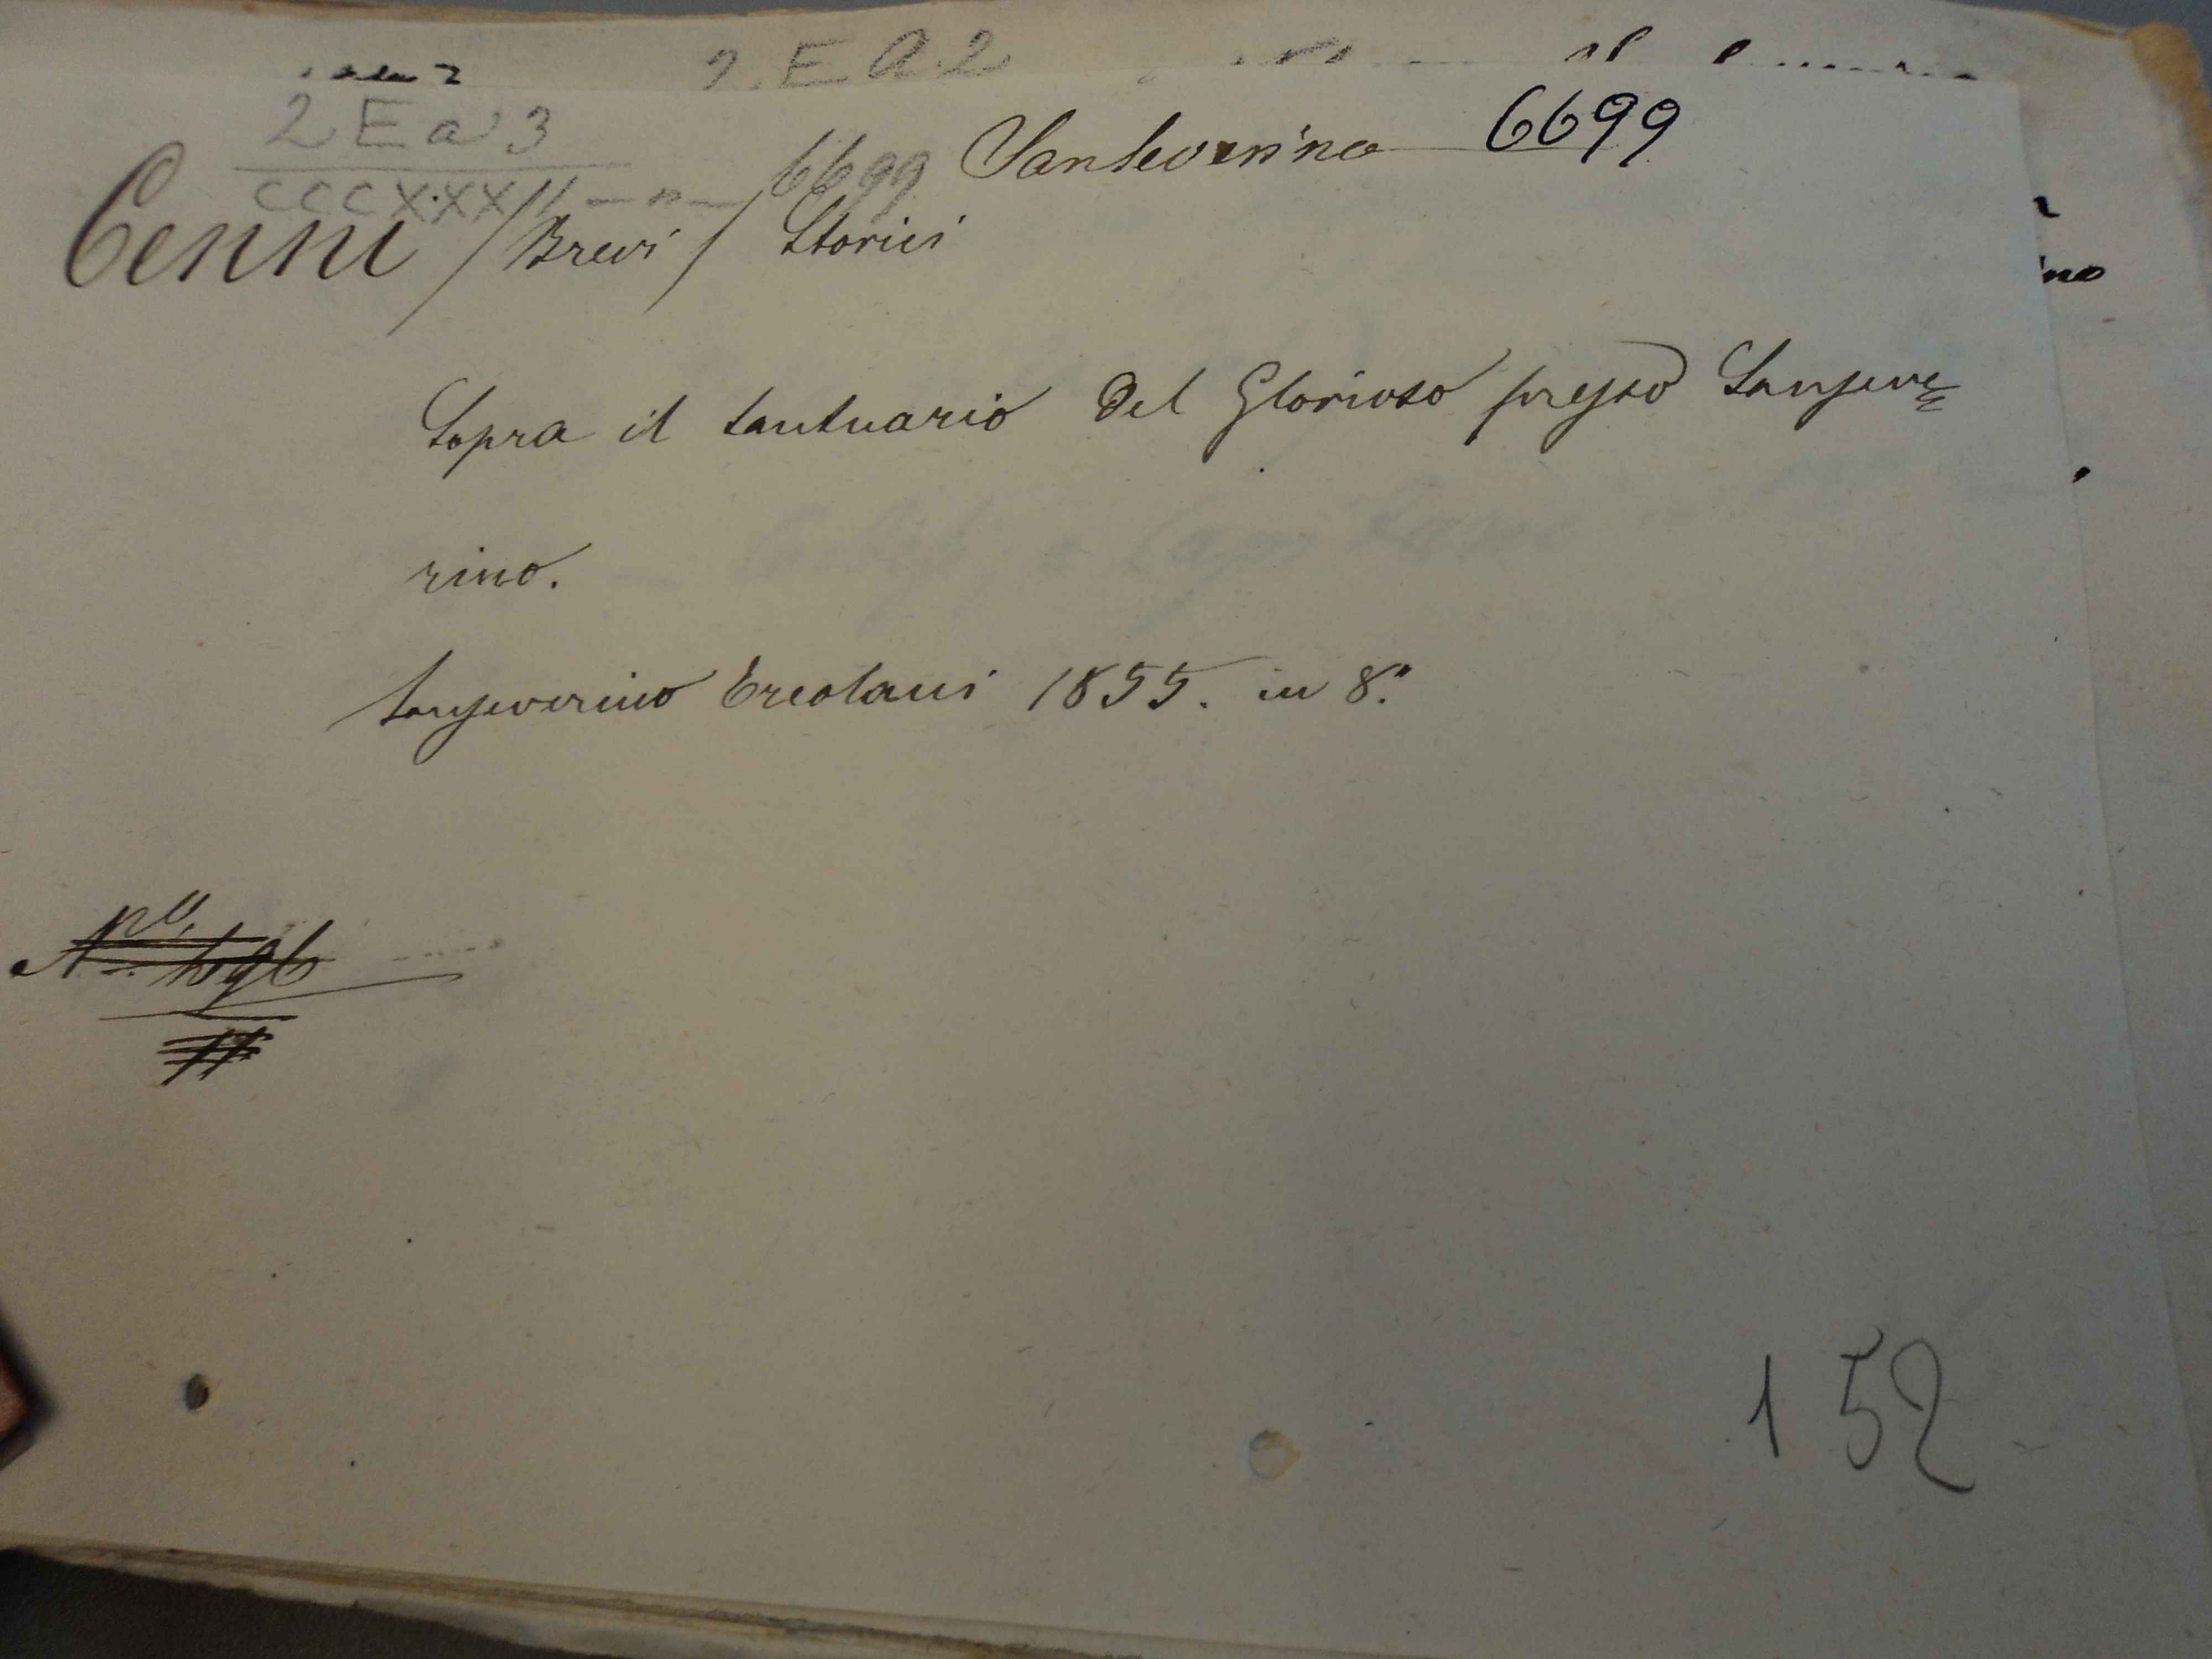 2 E A 2
2 E a 3
Sanseverino 6699
CCCXXXII 6699
Cenni / Brevi / Storici
Sopra il santuario del Glorioso presso Sanseve=
rino.
Sanseverino Ercolani 1855. in 8.°
152